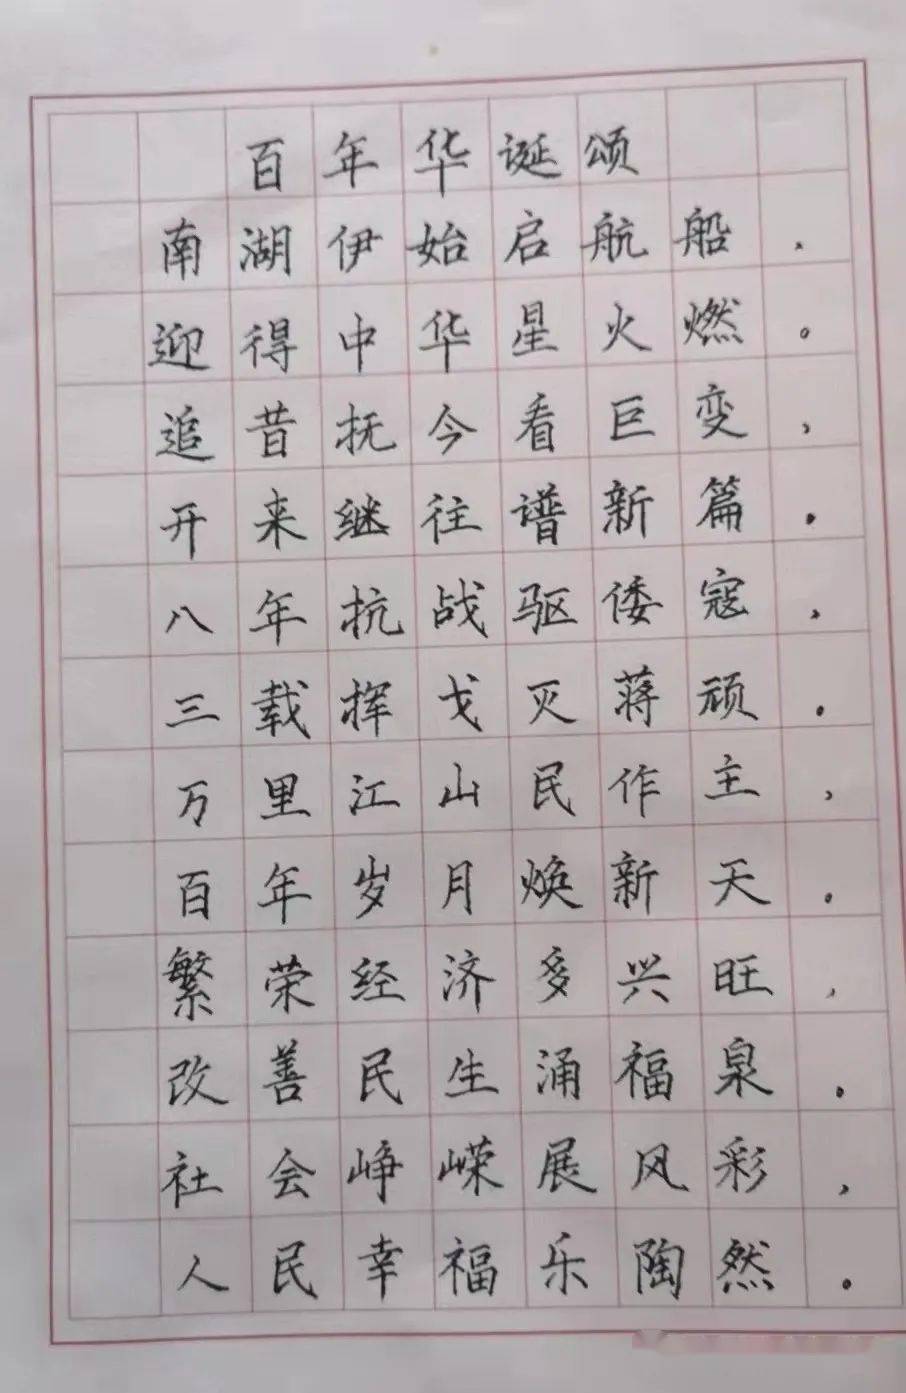 百年华诞颂
南湖伊始启航船，
迎得中华星火燃。
追昔抚今看巨变，
开来继往谱新篇。
八年抗战驱倭寇，
三载挥戈灭蒋顽。
万里江山民作主，
百年岁月焕新天。
繁荣经济多兴旺，
改善民生涌福泉。
社会峥嵘展风彩，
人民幸福乐陶然。